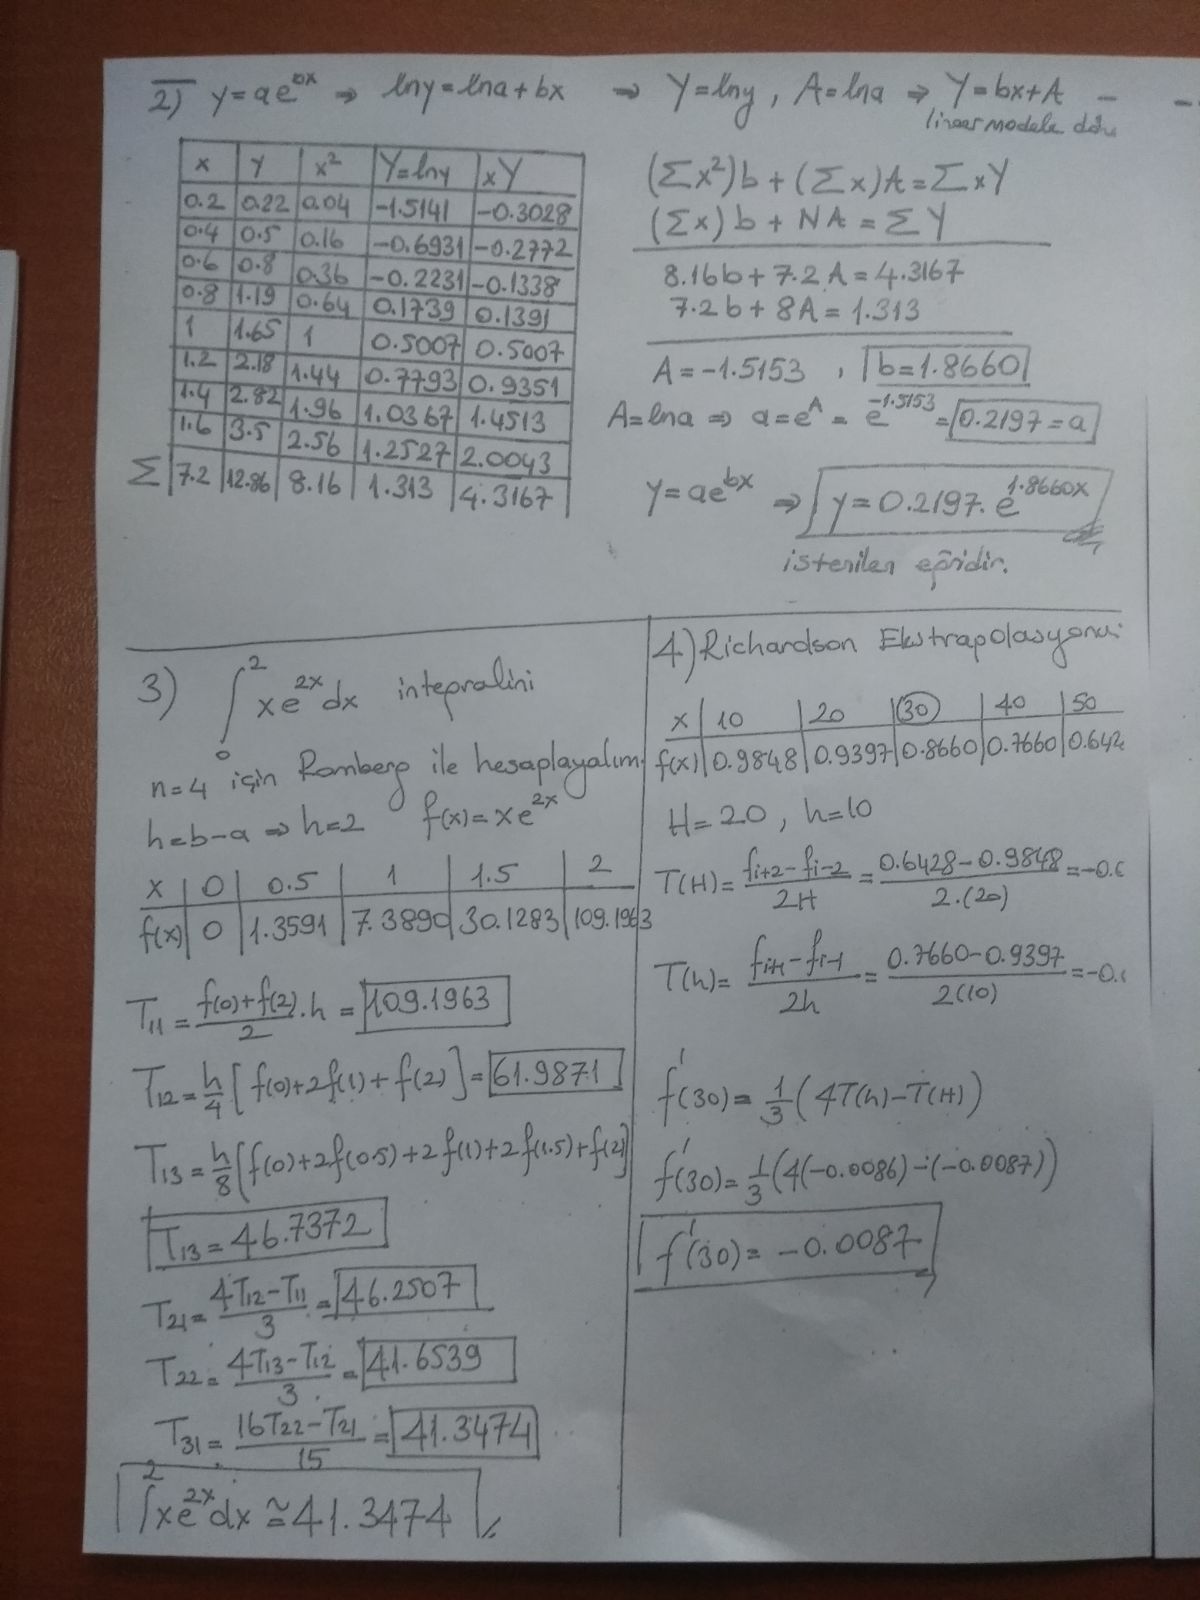 2) y=ae^bx ⇒ lny=lna+bx ⇒ Y=lny, A=lna ⇒ Y=bx+A
linear modele
x | y | x² | Y=lny | xY
0.2 | 0.22 | 0.04 | -1.5141 | -0.3028
0.4 | 0.5 | 0.16 | -0.6931 | -0.2772
0.6 | 0.8 | 0.36 | -0.2231 | -0.1338
0.8 | 1.19 | 0.64 | 0.1739 | 0.1391
1 | 1.65 | 1 | 0.5007 | 0.5007
1.2 | 2.18 | 1.44 | 0.7793 | 0.9351
1.4 | 2.82 | 1.96 | 1.0367 | 1.4513
1.6 | 3.5 | 2.56 | 1.2527 | 2.0043
Σ | 7.2 | 12.86 | 8.16 | 1.313 | 4.3167
(Σx²)b+(Σx)A=ΣxY
(Σx)b+NA=ΣY
8.16b+7.2A=4.3167
7.2b+8A=1.313
A=-1.5153, b=1.8660
A=lna ⇒ a=e^A = e^-1.5153 = 0.2197=a
y=ae^bx ⇒ y=0.2197.e^1.8660x
istenilen eğridir.
3) ∫₀² xe^2x dx integralini
n=4 için Romberg ile hesaplayalım.
h=b-a ⇒ h=2 f(x)=xe^2x
x | 0 | 0.5 | 1 | 1.5 | 2
f(x) | 0 | 1.3591 | 7.3890 | 30.1283 | 109.1963
T₁₁=(f(0)+f(2))/2 .h = 109.1963
T₁₂=h/4[f(0)+2f(1)+f(2)]=61.9871
T₁₃=h/8[f(0)+2f(0.5)+2f(1)+2f(1.5)+f(2)]
T₁₃=46.7372
T₂₁=(4T₁₂-T₁₁)/3=46.2507
T₂₂=(4T₁₃-T₁₂)/3=41.6539
T₃₁=(16T₂₂-T₂₁)/15=41.3474
∫² xe^2x dx ≅ 41.3474
4) Richardson Ekstrapolasyonu
x | 10 | 20 | 30 | 40 | 50
f(x) | 0.9848 | 0.9397 | 0.8660 | 0.7660 | 0.642
H=20, h=10
T(H)=(fi+2-fi-2)/2H=(0.6428-0.9848)/2.(20)=-0.0
T(h)=(fi+1-fi-1)/2h=(0.7660-0.9397)/2(10)=-0.0
f'(30)=1/3(4T(h)-T(H))
f'(30)=1/3(4(-0.0086)-(-0.0087))
f'(30)=-0.0087